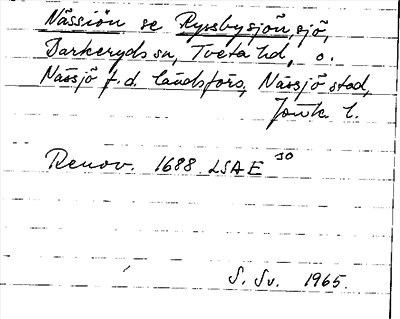 Nässiön se Ryssbysjön, sjö,
Barkeryds sn, Tveta hd, o.
Nässjö f.d. landsförs, Nässjö stad,
Jönk. l.
Renov. 1688 LSAE 30
S. Sv. 1965.